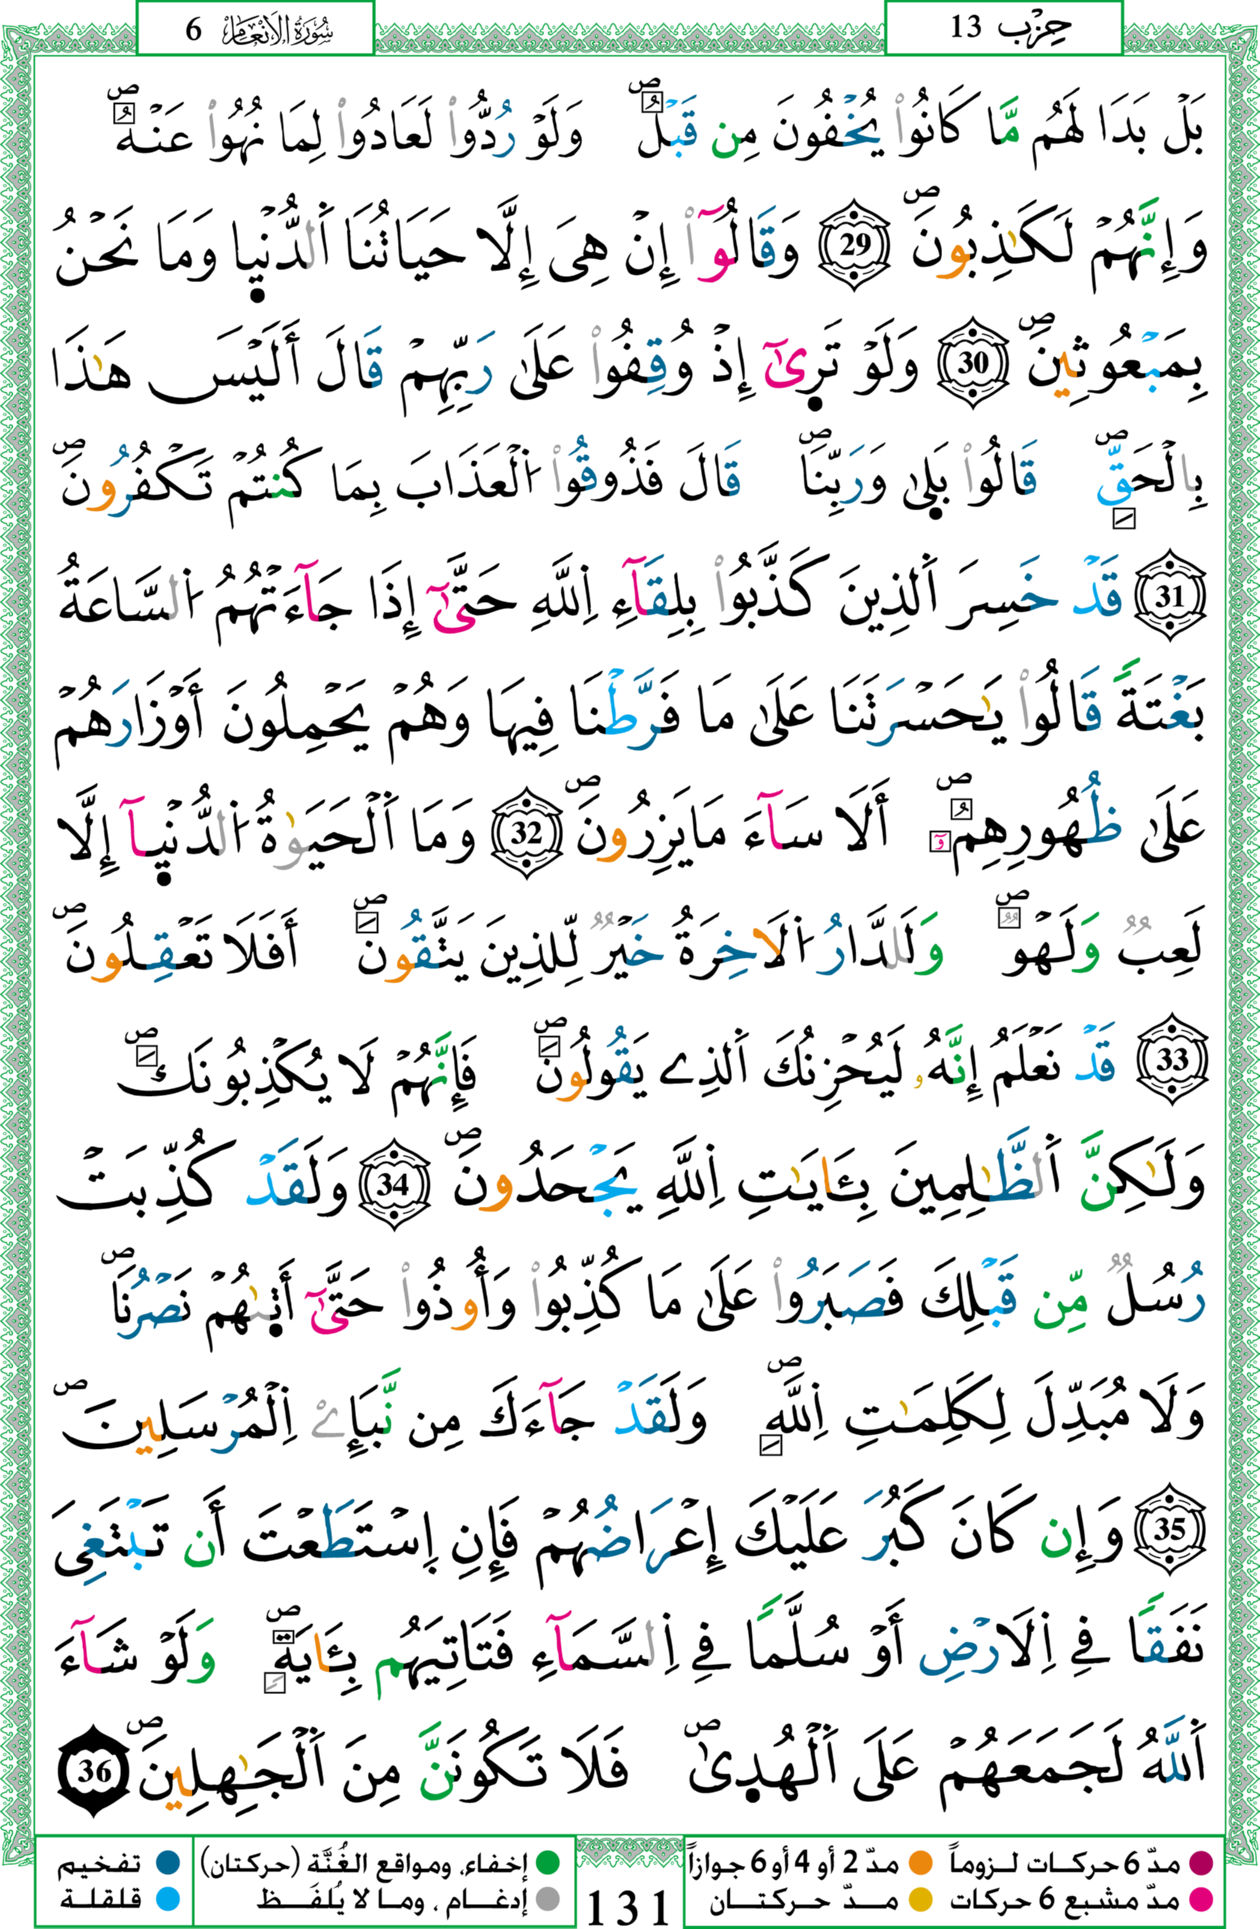 حِزْب 13
سُورَةُ الْأَنْعَام 6
بَلْ بَدَا لَهُم مَّا كَانُواْ يُخْفُونَ مِن قَبْلُ ۖ وَلَوْ رُدُّواْ لَعَادُواْ لِمَا نُهُواْ عَنْهُ ۖ
وَإِنَّهُمْ لَكَٰذِبُونَ ۖ 29 وَقَالُوٓاْ إِنْ هِىَ إِلَّا حَيَاتُنَا اَ۬لدُّنْي۪ا وَمَا نَحْنُ
بِمَبْعُوثِينَ ۖ 30 وَلَوْ تَر۪ىٰٓ إِذْ وُقِفُواْ عَلَىٰ رَبِّهِمْ قَالَ أَلَيْسَ هَٰذَا
بِالْحَقِّ ۖ قَالُواْ بَل۪ىٰ وَرَبِّنَا ۖ قَالَ فَذُوقُواْ اُ۬لْعَذَابَ بِمَا كُنتُمْ تَكْفُرُونَ ۖ
31 قَدْ خَسِرَ اَ۬لذِينَ كَذَّبُواْ بِلِقَآءِ اِ۬للَّهِ حَتَّىٰٓ إِذَا جَآءَتْهُمُ اُ۬لسَّاعَةُ
بَغْتَةً قَالُواْ يَٰحَسْرَتَنَا عَلَىٰ مَا فَرَّطْنَا فِيهَا وَهُمْ يَحْمِلُونَ أَوْزَارَهُمْ
عَلَىٰ ظُهُورِهِمُۥٓ ۖ أَلَا سَآءَ مَا يَزِرُونَ ۖ 32 وَمَا اَ۬لْحَيَوٰةُ اُ۬لدُّنْي۪آ إِلَّا
لَعِبٌ وَلَهْوٌ ۖ وَلَلدَّارُ اُ۬لَاخِرَةُ خَيْرٌ لِّلذِينَ يَتَّقُونَ ۖ أَفَلَا تَعْقِلُونَ ۖ
33 قَدْ نَعْلَمُ إِنَّهُۥ لَيُحْزِنُكَ اَ۬لذِے يَقُولُونَ ۖ فَإِنَّهُمْ لَا يُكْذِبُونَكَ ۖ
وَلَٰكِنَّ اَ۬لظَّٰلِمِينَ بِـَٔايَٰتِ اِ۬للَّهِ يَجْحَدُونَ ۖ 34 وَلَقَدْ كُذِّبَتْ
رُسُلٌ مِّن قَبْلِكَ فَصَبَرُواْ عَلَىٰ مَا كُذِّبُواْ وَأُوذُواْ حَتَّىٰٓ أَت۪ىٰهُمْ نَصْرُنَا ۖ
وَلَا مُبَدِّلَ لِكَلِمَٰتِ اِ۬للَّهِ ۖ وَلَقَدْ جَآءَكَ مِن نَّبَإِےْ اِ۬لْمُرْسَلِينَ ۖ
35 وَإِن كَانَ كَبُرَ عَلَيْكَ إِعْرَاضُهُمْ فَإِنِ اِ۪سْتَطَعْتَ أَن تَبْتَغِىَ
نَفَقًا فِے اِ۬لَارْضِ أَوْ سُلَّمًا فِے اِ۬لسَّمَآءِ فَتَاتِيَهُم بِـَٔايَةٍ ۖ وَلَوْ شَآءَ
اَ۬للَّهُ لَجَمَعَهُمْ عَلَى اَ۬لْهُد۪ىٰ ۖ فَلَا تَكُونَنَّ مِنَ اَ۬لْجَٰهِلِينَ ۖ 36
مدّ 6 حركات لـزوماً
مدّ 2 أو 4 أو 6 جوازاً
إخفاء، ومواقع الغُنَّة (حركتان)
تفخيم
مدّ مشبع 6 حركات
مدّ حركتان
إدغام، وما لا يُلفَظ
قلقلة
131